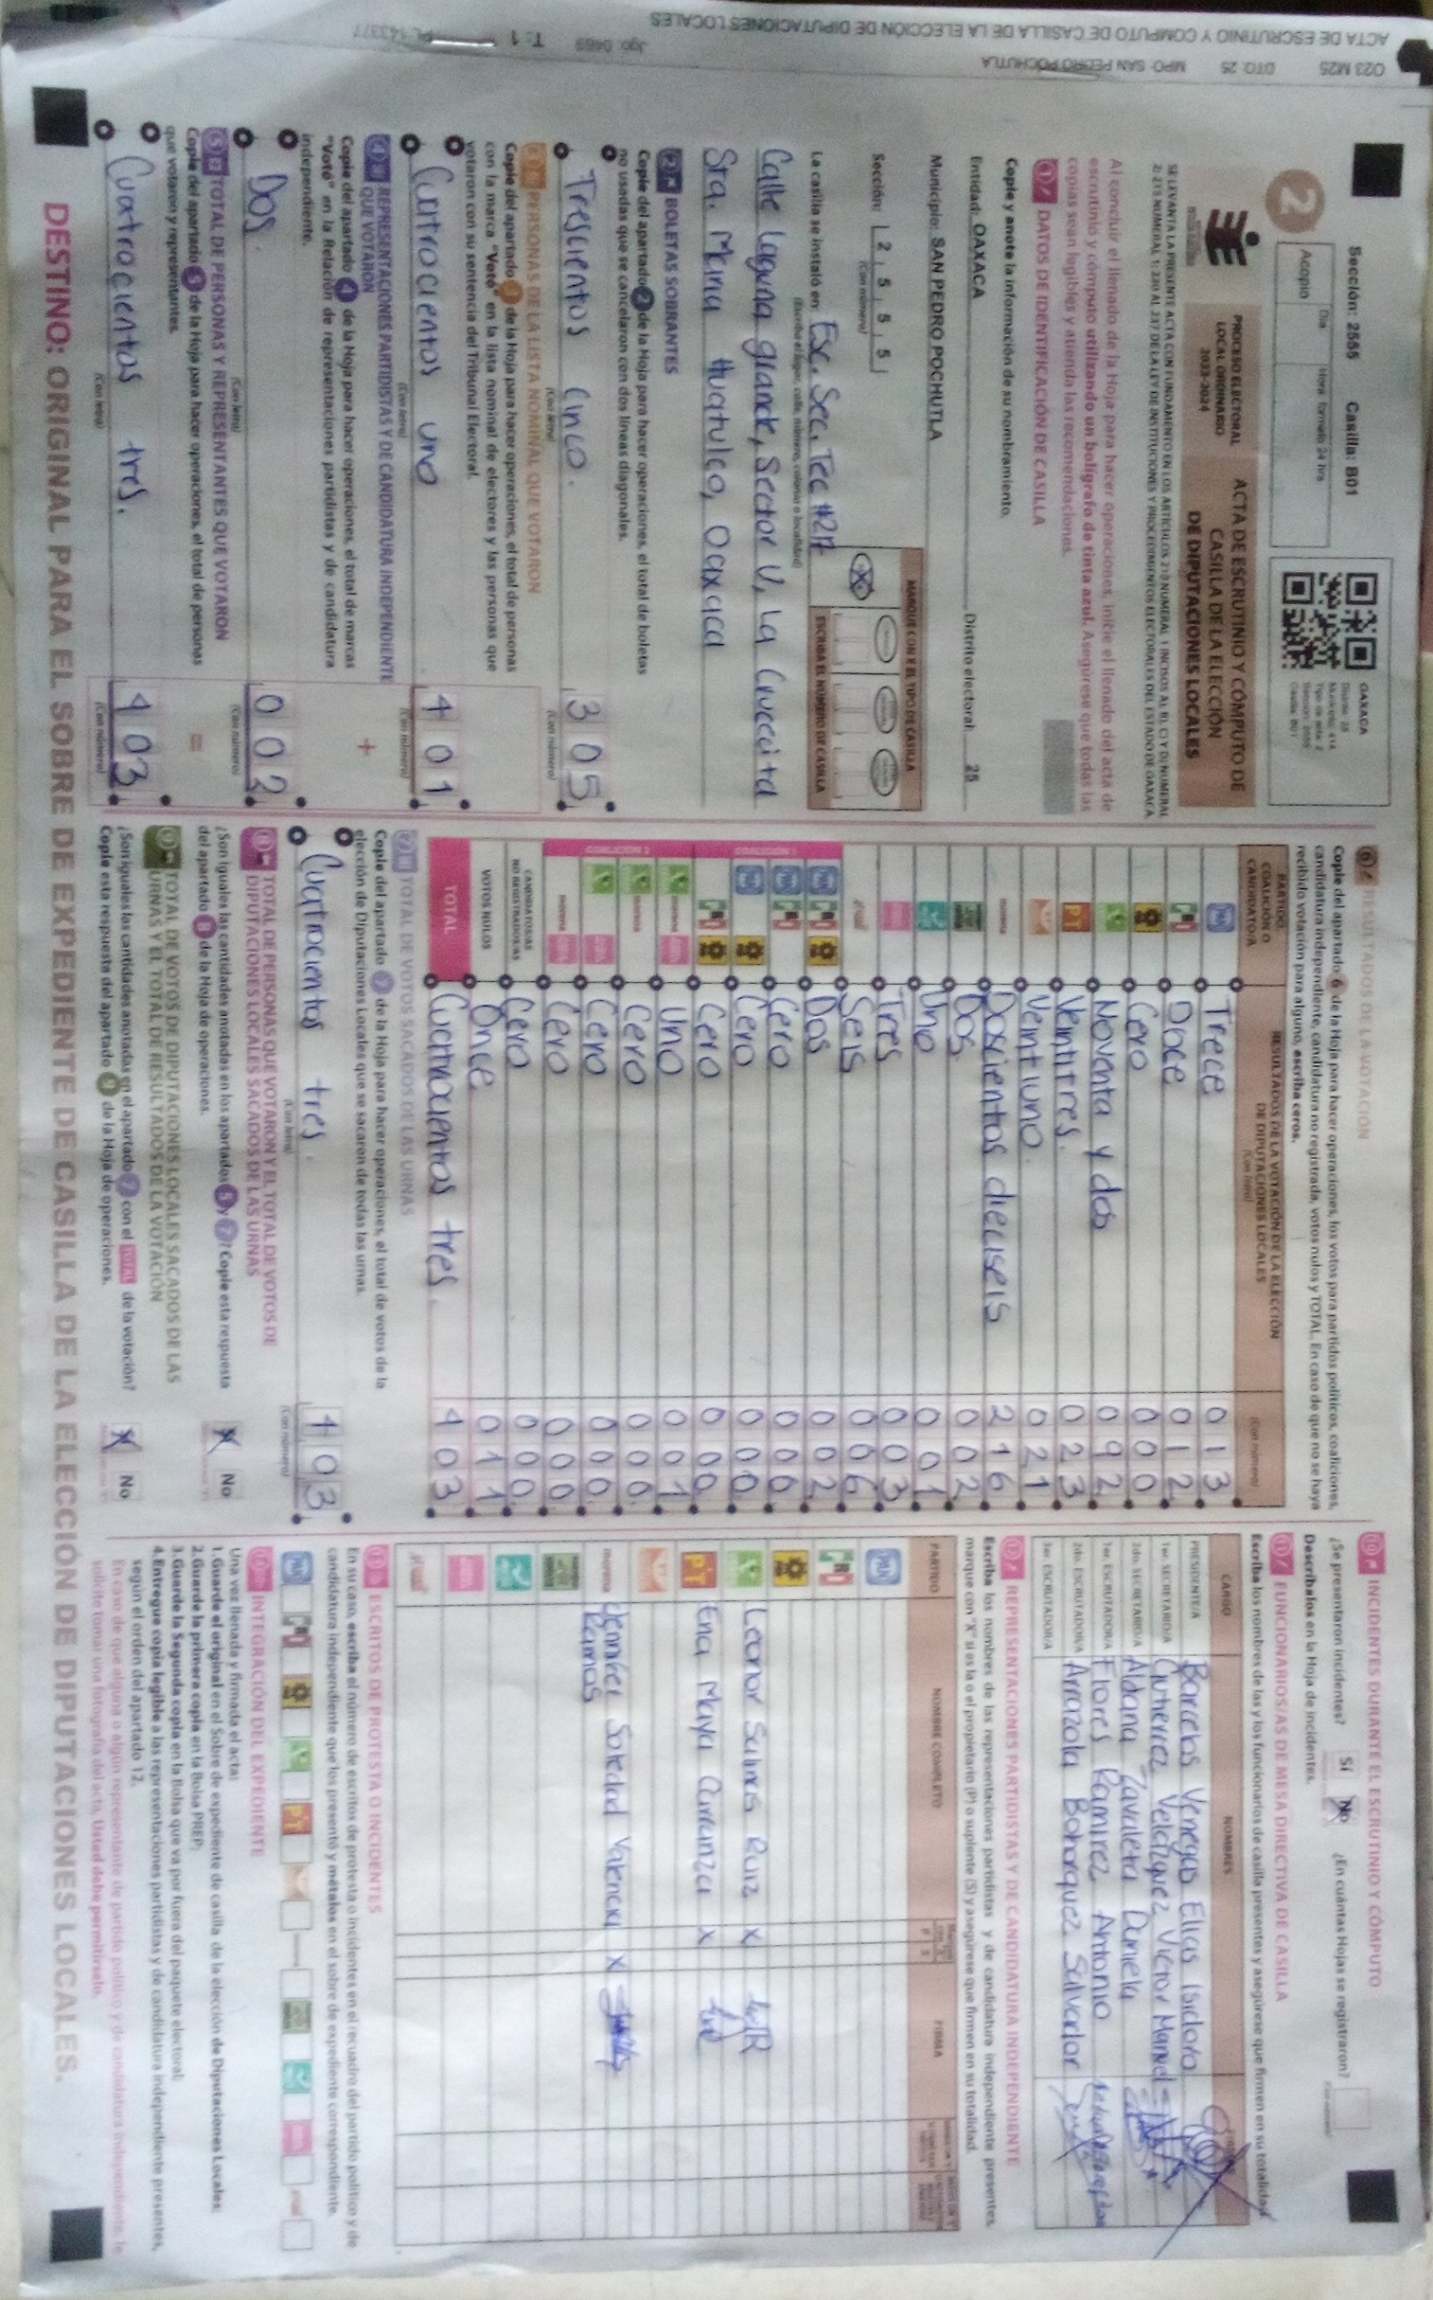 023 M25 DTO: 25 MPO: SAN PEDRO POCHUTLA
ACTA DE ESCRUTINIO Y CÓMPUTO DE CASILLA DE LA ELECCIÓN DE DIPUTACIONES LOCALES
Jgo: 0469 T: 1
Sección: 2555 Casilla: B01
2
Acopio
Día
OAXACA
PROCESO ELECTORAL
LOCAL ORDINARIO
2023-2024
ACTA DE ESCRUTINIO Y CÓMPUTO DE
CASILLA DE LA ELECCIÓN
DE DIPUTACIONES LOCALES
Al concluir el llenado de la Hoja para hacer operaciones, inicie el llenado del acta de
escrutinio y cómputo utilizando un bolígrafo de tinta azul. Asegúrese que todas las
copias sean legibles y atienda las recomendaciones.
1 DATOS DE IDENTIFICACIÓN DE CASILLA
Copie y anote la información de su nombramiento.
Entidad: OAXACA Distrito electoral: 25
Municipio: SAN PEDRO POCHUTLA
Sección: 2 5 5 5
(Con número)
MARQUE CON X EL TIPO DE CASILLA
ESCRIBA EL NÚMERO DE CASILLA
La casilla se instaló en: Esc. Sec. Tec #217
Calle laguna grande, Sector U, La Crucecita
Sta. Maria Huatulco, Oaxaca
2 BOLETAS SOBRANTES
Copie del apartado 2 de la Hoja para hacer operaciones, el total de boletas
no usadas que se cancelaron con dos líneas diagonales.
Trescientos cinco. 305
(Con letra) (Con número)
3 PERSONAS DE LA LISTA NOMINAL QUE VOTARON
Copie del apartado 3 de la Hoja para hacer operaciones, el total de personas
con la marca "Votó" en la lista nominal de electores y las personas que
votaron con su sentencia del Tribunal Electoral.
Cuatrocientos uno 401
(Con letra) (Con número)
4 REPRESENTACIONES PARTIDISTAS Y DE CANDIDATURA INDEPENDIENTE
QUE VOTARON
Copie del apartado 4 de la Hoja para hacer operaciones, el total de marcas
"Votó" en la Relación de representaciones partidistas y de candidatura
independiente.
Dos. 002
(Con letra) (Con número)
5 TOTAL DE PERSONAS Y REPRESENTANTES QUE VOTARON
Copie del apartado 5 de la Hoja para hacer operaciones, el total de personas
que votaron y representantes.
Cuatrocientos tres. 403
(Con letra) (Con número)
6 RESULTADOS DE LA VOTACIÓN
Copie del apartado 6 de la Hoja para hacer operaciones, los votos para partidos políticos, coaliciones,
candidatura independiente, candidatura no registrada, votos nulos y TOTAL. En caso de que no se haya
recibido votación para alguno, escriba ceros.
PARTIDO,
COALICIÓN O
CANDIDATO/A
RESULTADOS DE LA VOTACIÓN DE LA ELECCIÓN
DE DIPUTACIONES LOCALES
(Con letra) (Con número)
PAN Trece 013
PRI Doce 012
Cero 000
Noventa y dos 092
PT Veintitres. 023
Veintiuno. 021
morena Doscientos dieciseis 216
Dos. 002
Uno 001
Tres 003
Seis 006
COALICIÓN 1
PAN PRI Dos 002
PAN PRI Cero 000
PAN Cero 000
PRI Cero 000
COALICIÓN 2
morena Uno 001
morena Cero 000
Cero 000
morena Cero 000
CANDIDATOS/AS
NO REGISTRADOS/AS Cero 000
VOTOS NULOS Once 011
TOTAL Cuatrocientos tres 403
7 TOTAL DE VOTOS SACADOS DE LAS URNAS
Copie del apartado 7 de la Hoja para hacer operaciones, el total de votos de la
elección de Diputaciones Locales que se sacaron de todas las urnas.
Cuatrocientos tres. 403
(Con letra) (Con número)
8 TOTAL DE PERSONAS QUE VOTARON Y EL TOTAL DE VOTOS DE
DIPUTACIONES LOCALES SACADOS DE LAS URNAS
¿Son iguales las cantidades anotadas en los apartados 5 y 7? Copie esta respuesta
del apartado 8 de la Hoja de operaciones.
No
9 TOTAL DE VOTOS DE DIPUTACIONES LOCALES SACADOS DE LAS
URNAS Y EL TOTAL DE RESULTADOS DE LA VOTACIÓN
¿Son iguales las cantidades anotadas en el apartado 7 con el TOTAL de la votación?
Copie esta respuesta del apartado 9 de la Hoja de operaciones.
No
10 INCIDENTES DURANTE EL ESCRUTINIO Y CÓMPUTO
¿Se presentaron incidentes? Sí No ¿En cuántas Hojas se registraron?
Descríbalos en la Hoja de incidentes.
11 FUNCIONARIOS/AS DE MESA DIRECTIVA DE CASILLA
Escriba los nombres de las y los funcionarios de casilla presentes y asegúrese que firmen en su totalidad.
CARGO NOMBRES
PRESIDENTE/A Barcelos Venegas Elias Isidoro
1er. SECRETARIO/A Gutierrez Velazquez Victor Manuel
2do. SECRETARIO/A Aldana Zavaleta Daniela
1er. ESCRUTADOR/A Flores Ramirez Antonio
2do. ESCRUTADOR/A Arrazola Bohorquez Salvador
3er. ESCRUTADOR/A
12 REPRESENTACIONES PARTIDISTAS Y DE CANDIDATURA INDEPENDIENTE
Escriba los nombres de las representaciones partidistas y de candidatura independiente presentes,
marque con "X" si es la o el propietario (P) o suplente (S) y asegúrese que firmen en su totalidad.
PARTIDO NOMBRE COMPLETO FIRMA
PAN
PRI
Leonor Salinas Ruiz X
PT Ena Maya Carranza X
morena Jennifer Soledad Valencia X
Ramos
13 ESCRITOS DE PROTESTA O INCIDENTES
En su caso, escriba el número de escritos de protesta o incidentes en el recuadro del partido político y de
candidatura independiente que los presentó y métalos en el sobre de expediente correspondiente.
INTEGRACIÓN DEL EXPEDIENTE
Una vez llenada y firmada el acta:
1. Guarde el original en el Sobre de expediente de casilla de la elección de Diputaciones Locales;
2. Guarde la primera copia en la Bolsa PREP;
3. Guarde la Segunda copia en la Bolsa que va por fuera del paquete electoral;
4. Entregue copia legible a las representaciones partidistas y de candidatura independiente presentes,
según el orden del apartado 12.
En caso de que alguna o algún representante de partido político y de candidatura independiente, le
solicite tomar una fotografía del acta, Usted debe permitírselo.
DESTINO: ORIGINAL PARA EL SOBRE DE EXPEDIENTE DE CASILLA DE LA ELECCIÓN DE DIPUTACIONES LOCALES.